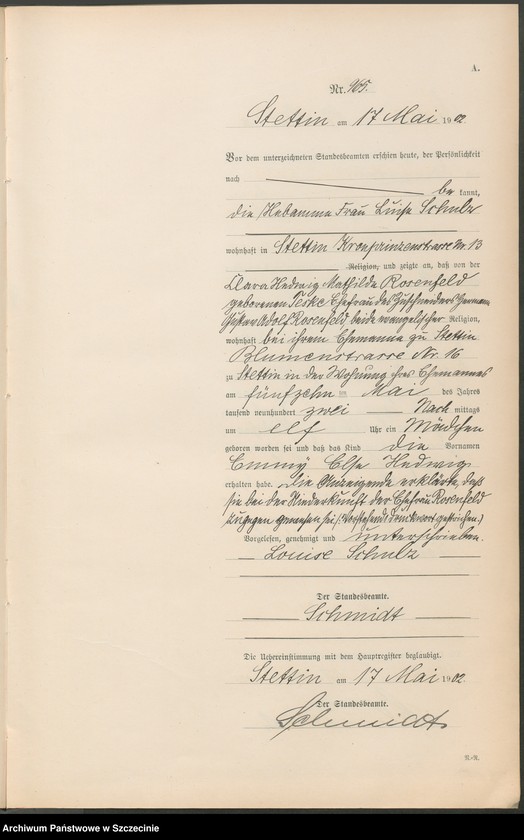 A.
Nr. 965.
Stettin am 17 Mai 1902.
Vor dem unterzeichneten Standesbeamten erschien heute, der Persönlichkeit
nach be kannt,
die Hebamme Frau Luise Schulz
wohnhaft in Stettin Kronprinzenstrasse Nr. 13
Religion, und zeigte an, daß von der
Clara Hedwig Mathilde Rosenfeld
geborenen Teske Ehefrau des Zuschneiders Hermann
Gustav Adolf Rosenfeld beide evangelischer Religion,
wohnhaft bei ihrem Ehemanne zu Stettin
Blumenstrasse Nr. 16
zu Stettin in der Wohnung ihres Ehemannes
am fünfzehn ten Mai des Jahres
tausend neunhundert zwei Nach mittags
um elf Uhr ein Mädchen
geboren worden sei und daß das Kind die Vornamen
Emmy Else Hedwig
erhalten habe. Die Anzeigende erklärte, daß
sie bei der Niederkunft der Ehefrau Rosenfeld
zugegen gewesen sei. (Vorstehend Druckwort gestrichen.)
Vorgelesen, genehmigt und unterschrieben.
Louise Schulz
Der Standesbeamte.
Schmidt
Die Uebereinstimmung mit dem Hauptregister beglaubigt.
Stettin am 17 Mai 1902.
Der Standesbeamte.
Schmidt
Archiwum Państwowe w Szczecinie